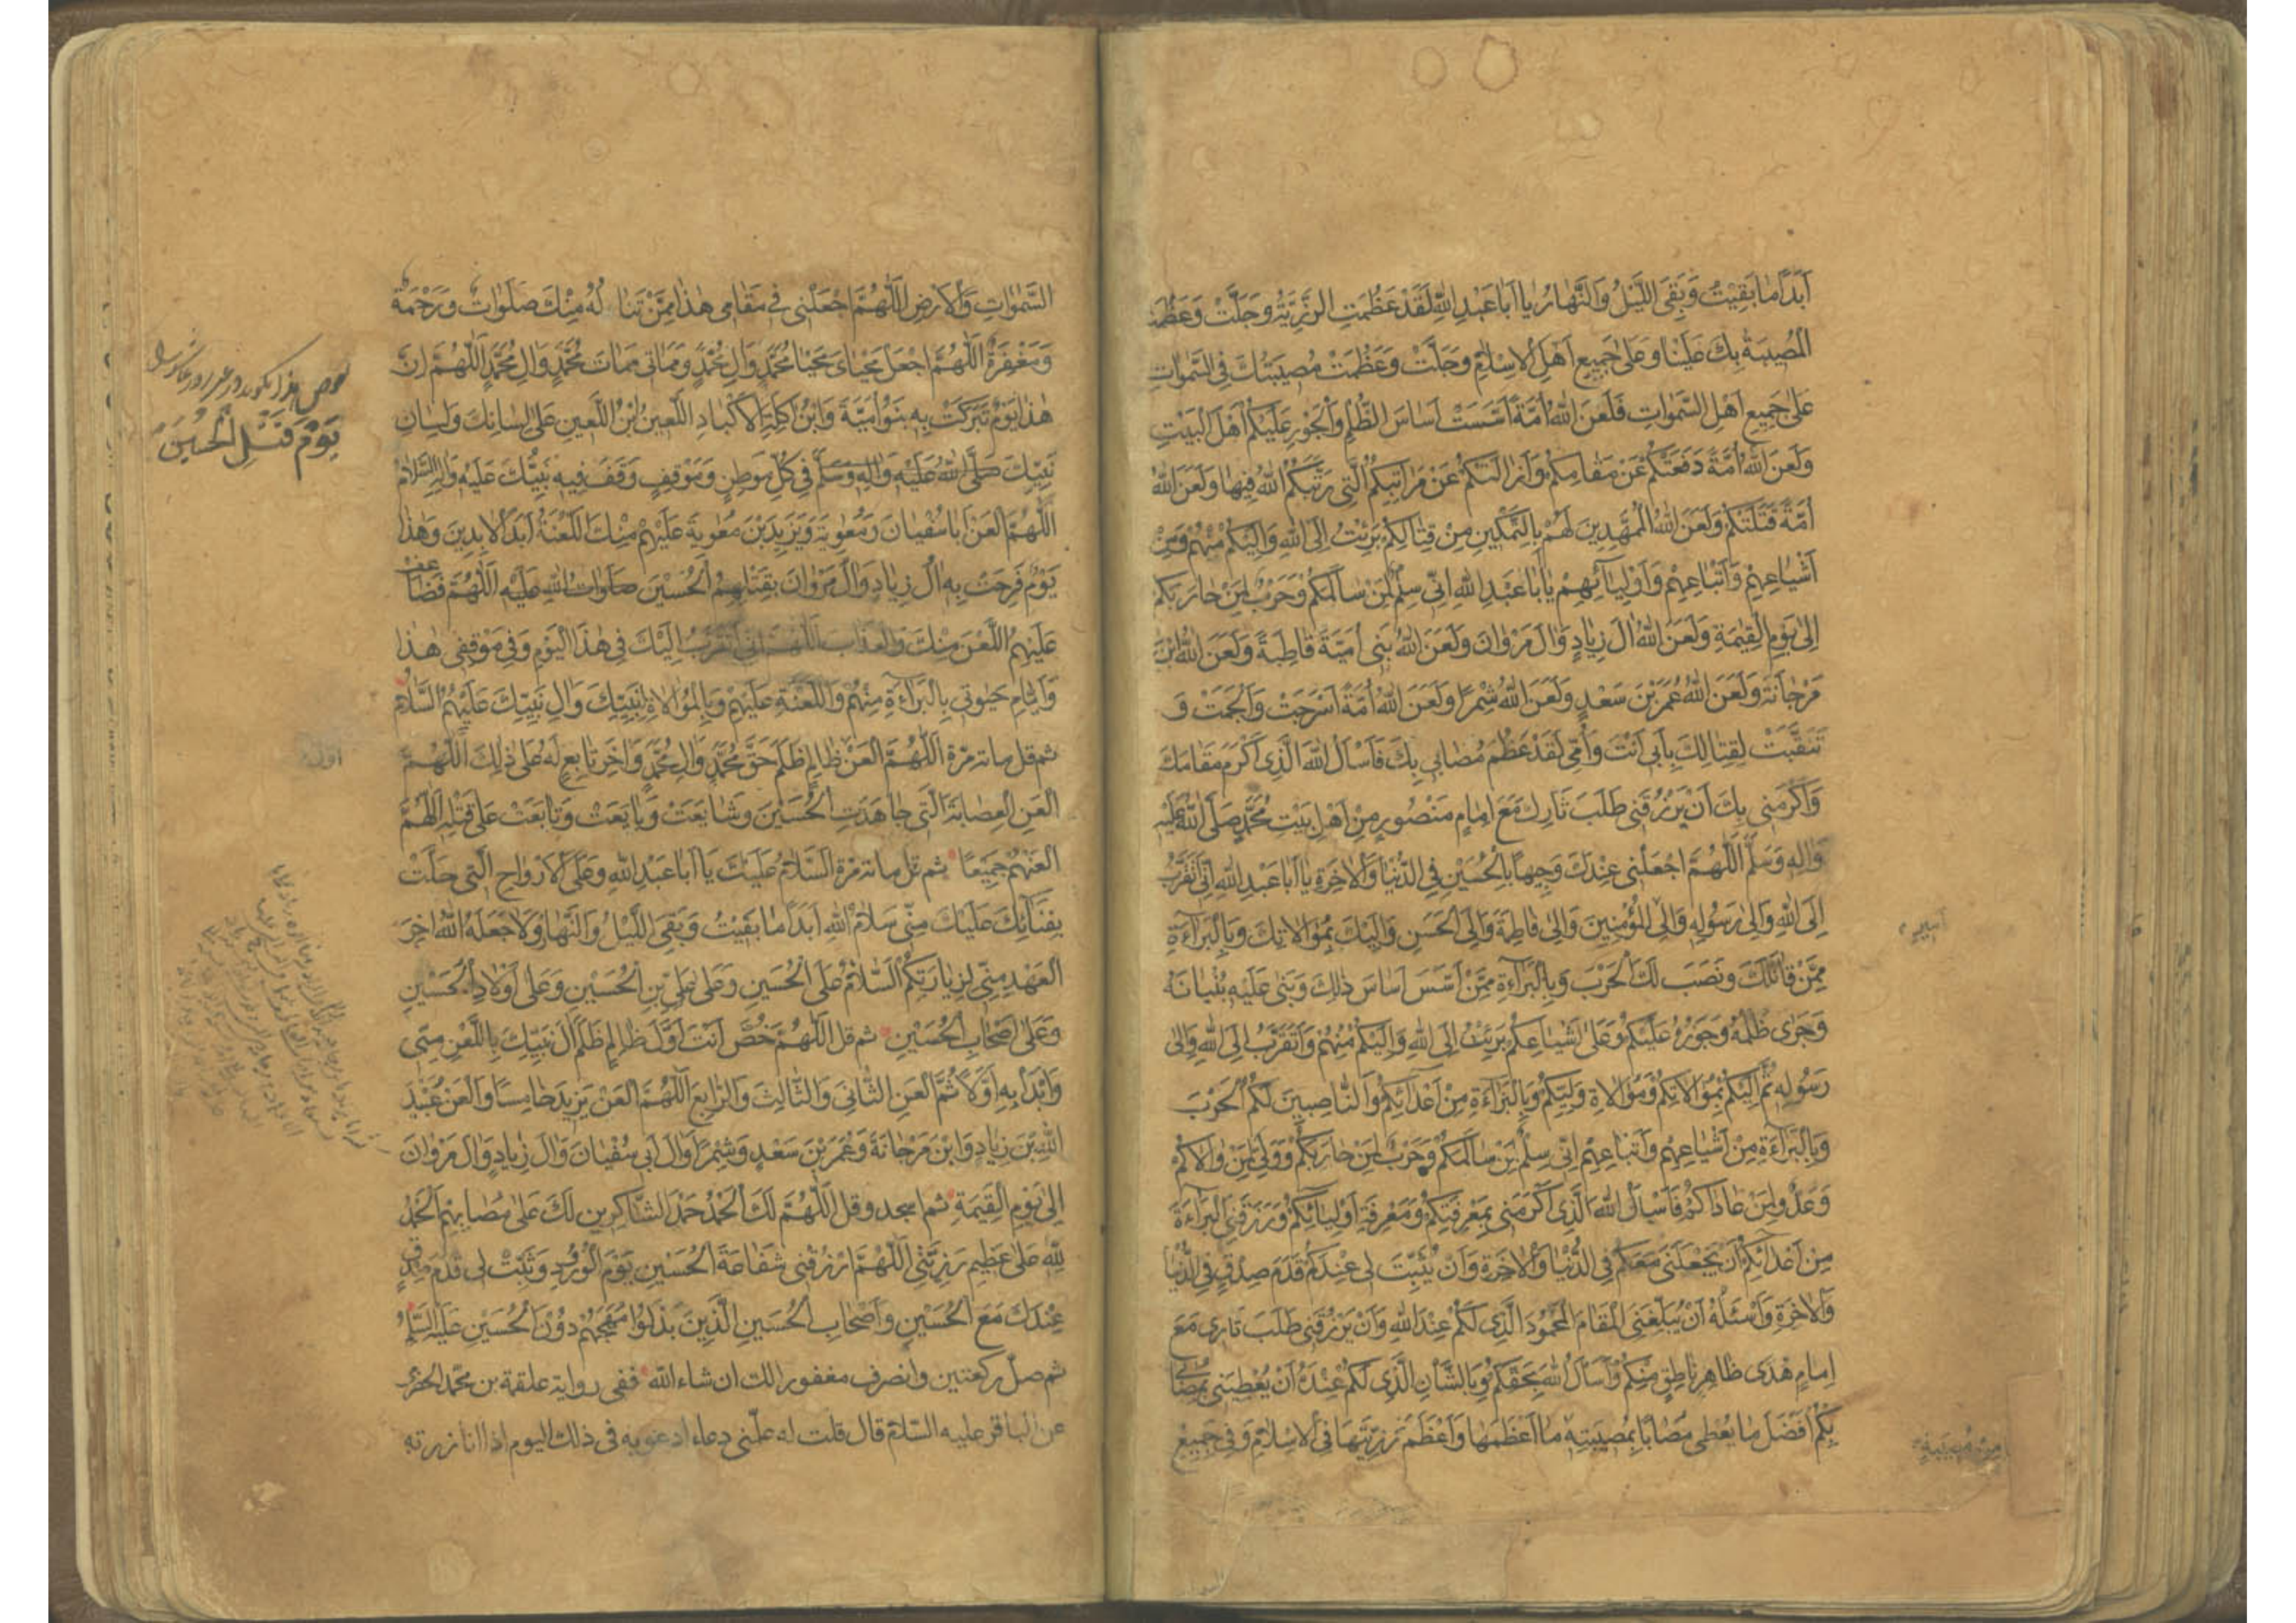 اَبَدًا مَا بَقِيْتُ وَبَقِيَ اللَّيْلُ وَالنَّهَارُ يَا اَبَا عَبْدِ اللهِ لَقَدْ عَظُمَتِ الرَّزِيَّةُ وَجَلَّتْ وَعَظُمَتِ
الْمُصِيبَةُ بِكَ عَلَيْنَا وَعَلىٰ جَمِيعِ اَهْلِ الْاِسْلَامِ وَجَلَّتْ وَعَظُمَتْ مُصِيبَتُكَ فِي السَّمٰوَاتِ
عَلىٰ جَمِيعِ اَهْلِ السَّمٰوَاتِ فَلَعَنَ اللهُ اُمَّةً اَسَّسَتْ اَسَاسَ الظُّلْمِ وَالْجَوْرِ عَلَيْكُمْ اَهْلَ الْبَيْتِ
وَلَعَنَ اللهُ اُمَّةً دَفَعَتْكُمْ عَنْ مَقَامِكُمْ وَاَزَالَتْكُمْ عَنْ مَرَاتِبِكُمُ الَّتِي رَتَّبَكُمُ اللهُ فِيهَا وَلَعَنَ اللهُ
اُمَّةً قَتَلَتْكُمْ وَلَعَنَ اللهُ الْمُمَهِّدِينَ لَهُمْ بِالتَّمْكِينِ مِنْ قِتَالِكُمْ بَرِئْتُ اِلَى اللهِ وَاِلَيْكُمْ مِنْهُمْ وَمِنْ
اَشْيَاعِهِمْ وَاَتْبَاعِهِمْ وَاَوْلِيَائِهِمْ يَا اَبَا عَبْدِ اللهِ اِنِّي سِلْمٌ لِمَنْ سَالَمَكُمْ وَحَرْبٌ لِمَنْ حَارَبَكُمْ
اِلىٰ يَوْمِ الْقِيٰمَةِ وَلَعَنَ اللهُ اٰلَ زِيَادٍ وَاٰلَ مَرْوَانَ وَلَعَنَ اللهُ بَنِي اُمَيَّةَ قَاطِبَةً وَلَعَنَ اللهُ ابْنَ
مَرْجَانَةَ وَلَعَنَ اللهُ عُمَرَ بْنَ سَعْدٍ وَلَعَنَ اللهُ شِمْرًا وَلَعَنَ اللهُ اُمَّةً اَسْرَجَتْ وَاَلْجَمَتْ وَ
تَنَقَّبَتْ لِقِتَالِكَ بِاَبِي اَنْتَ وَاُمِّي لَقَدْ عَظُمَ مُصَابِي بِكَ فَاَسْاَلُ اللهَ الَّذِي اَكْرَمَ مَقَامَكَ
وَاَكْرَمَنِي بِكَ اَنْ يَرْزُقَنِي طَلَبَ ثَارِكَ مَعَ اِمَامٍ مَنْصُورٍ مِنْ اَهْلِ بَيْتِ مُحَمَّدٍ صَلَّى اللهُ عَلَيْهِ
وَاٰلِهِ وَسَلَّمَ اَللّٰهُمَّ اجْعَلْنِي عِنْدَكَ وَجِيهًا بِالْحُسَيْنِ فِي الدُّنْيَا وَالْاٰخِرَةِ يَا اَبَا عَبْدِ اللهِ اِنِّي اَتَقَرَّبُ
اِلَى اللهِ وَاِلىٰ رَسُولِهِ وَاِلىٰ الْمُؤْمِنِينَ وَاِلىٰ فَاطِمَةَ وَاِلَى الْحَسَنِ وَاِلَيْكَ بِمُوَالَاتِكَ وَبِالْبَرَاءَةِ
مِمَّنْ قَاتَلَكَ وَنَصَبَ لَكَ الْحَرْبَ وَبِالْبَرَاءَةِ مِمَّنْ اَسَّسَ اَسَاسَ ذٰلِكَ وَبَنىٰ عَلَيْهِ بُنْيَانَهُ
وَجَرىٰ ظُلْمُهُ وَجَوْرُهُ عَلَيْكُمْ وَعَلىٰ اَشْيَاعِكُمْ بَرِئْتُ اِلَى اللهِ وَاِلَيْكُمْ مِنْهُمْ وَاَتَقَرَّبُ اِلَى اللهِ وَاِلىٰ
رَسُولِهِ ثُمَّ اِلَيْكُمْ بِمُوَالَاتِكُمْ وَمُوَالَاةِ وَلِيِّكُمْ وَبِالْبَرَاءَةِ مِنْ اَعْدَائِكُمْ وَالنَّاصِبِينَ لَكُمُ الْحَرْبَ
وَبِالْبَرَاءَةِ مِنْ اَشْيَاعِهِمْ وَاَتْبَاعِهِمْ اِنِّي سِلْمٌ لِمَنْ سَالَمَكُمْ وَحَرْبٌ لِمَنْ حَارَبَكُمْ وَوَلِيٌّ لِمَنْ وَالَاكُمْ
وَعَدُوٌّ لِمَنْ عَادَاكُمْ فَاَسْاَلُ اللهَ الَّذِي اَكْرَمَنِي بِمَعْرِفَتِكُمْ وَمَعْرِفَةِ اَوْلِيَائِكُمْ وَرَزَقَنِي الْبَرَاءَةَ
مِنْ اَعْدَائِكُمْ اَنْ يَجْعَلَنِي مَعَكُمْ فِي الدُّنْيَا وَالْاٰخِرَةِ وَاَنْ يُثَبِّتَ لِي عِنْدَكُمْ قَدَمَ صِدْقٍ فِي الدُّنْيَا
وَالْاٰخِرَةِ وَاَسْئَلُهُ اَنْ يُبَلِّغَنِي الْمَقَامَ الْمَحْمُودَ الَّذِي لَكُمْ عِنْدَ اللهِ وَاَنْ يَرْزُقَنِي طَلَبَ ثَارِي مَعَ
اِمَامٍ هُدًى ظَاهِرٍ نَاطِقٍ مِنْكُمْ وَاَسْاَلُ اللهَ بِحَقِّكُمْ وَبِالشَّاْنِ الَّذِي لَكُمْ عِنْدَهُ اَنْ يُعْطِيَنِي بِمُصَابِي
بِكُمْ اَفْضَلَ مَا يُعْطِي مُصَابًا بِمُصِيبَتِهِ مَا اَعْظَمَهَا وَاَعْظَمَ رَزِيَّتَهَا فِي الْاِسْلَامِ وَفِي جَمِيعِ
مِنْ مُصِيبَةٍ
السَّمٰوَاتِ وَالْاَرْضِ اَللّٰهُمَّ اجْعَلْنِي فِي مَقَامِي هٰذَا مِمَّنْ تَنَالُهُ مِنْكَ صَلَوَاتٌ وَرَحْمَةٌ
وَمَغْفِرَةٌ اَللّٰهُمَّ اجْعَلْ مَحْيَايَ مَحْيَا مُحَمَّدٍ وَاٰلِ مُحَمَّدٍ وَمَمَاتِي مَمَاتَ مُحَمَّدٍ وَاٰلِ مُحَمَّدٍ اَللّٰهُمَّ اِنَّ
هٰذَا يَوْمٌ تَبَرَّكَتْ بِهِ بَنُو اُمَيَّةَ وَابْنُ اٰكِلَةِ الْاَكْبَادِ اللَّعِينُ ابْنُ اللَّعِينِ عَلىٰ لِسَانِكَ وَلِسَانِ
نَبِيِّكَ صَلَّى اللهُ عَلَيْهِ وَاٰلِهِ وَسَلَّمَ فِي كُلِّ مَوْطِنٍ وَمَوْقِفٍ وَقَفَ فِيهِ نَبِيُّكَ عَلَيْهِ وَاٰلِهِ السَّلَامُ
اَللّٰهُمَّ الْعَنْ اَبَا سُفْيَانَ وَمُعٰوِيَةَ وَيَزِيدَ بْنَ مُعٰوِيَةَ عَلَيْهِمْ مِنْكَ اللَّعْنَةُ اَبَدَ الْاٰبِدِينَ وَهٰذَا
يَوْمٌ فَرِحَتْ بِهِ اٰلُ زِيَادٍ وَاٰلُ مَرْوَانَ بِقَتْلِهِمُ الْحُسَيْنَ صَلَوَاتُ اللهِ عَلَيْهِ اَللّٰهُمَّ فَضَاعِفْ
عَلَيْهِمُ اللَّعْنَ مِنْكَ وَالْعَذَابَ اَللّٰهُمَّ اِنِّي اَتَقَرَّبُ اِلَيْكَ فِي هٰذَا الْيَوْمِ وَفِي مَوْقِفِي هٰذَا
وَاَيَّامِ حَيٰوتِي بِالْبَرَاءَةِ مِنْهُمْ وَاللَّعْنَةِ عَلَيْهِمْ وَبِالْمُوَالَاةِ لِنَبِيِّكَ وَاٰلِ نَبِيِّكَ عَلَيْهِمُ السَّلَامُ
ثم قل مائة مرة اَللّٰهُمَّ الْعَنْ ظَالِمٍ ظَلَمَ حَقَّ مُحَمَّدٍ وَاٰلِ مُحَمَّدٍ وَاٰخِرَ تَابِعٍ لَهُ عَلىٰ ذٰلِكَ اَللّٰهُمَّ
الْعَنِ الْعِصَابَةَ الَّتِي جَاهَدَتِ الْحُسَيْنَ وَشَايَعَتْ وَبَايَعَتْ وَتَابَعَتْ عَلىٰ قَتْلِهِ اَللّٰهُمَّ
الْعَنْهُمْ جَمِيعًا ثم قل مائة مرة اَلسَّلَامُ عَلَيْكَ يَا اَبَا عَبْدِ اللهِ وَعَلَى الْاَرْوَاحِ الَّتِي حَلَّتْ
بِفِنَائِكَ عَلَيْكَ مِنِّي سَلَامُ اللهِ اَبَدًا مَا بَقِيْتُ وَبَقِيَ اللَّيْلُ وَالنَّهَارُ وَلَا جَعَلَهُ اللهُ اٰخِرَ
الْعَهْدِ مِنِّي لِزِيَارَتِكُمْ اَلسَّلَامُ عَلَى الْحُسَيْنِ وَعَلىٰ عَلِيِّ بْنِ الْحُسَيْنِ وَعَلىٰ اَوْلَادِ الْحُسَيْنِ
وَعَلىٰ اَصْحَابِ الْحُسَيْنِ ثم قل اَللّٰهُمَّ خُصَّ اَنْتَ اَوَّلَ ظَالِمٍ ظَلَمَ اٰلَ نَبِيِّكَ بِاللَّعْنِ مِنِّي
وَابْدَاْ بِهِ اَوَّلًا ثُمَّ الْعَنِ الثَّانِيَ وَالثَّالِثَ وَالرَّابِعَ اَللّٰهُمَّ الْعَنْ يَزِيدَ خَامِسًا وَالْعَنْ عُبَيْدَ
اللهِ بْنَ زِيَادٍ وَابْنَ مَرْجَانَةَ وَعُمَرَ بْنَ سَعْدٍ وَشِمْرًا وَاٰلَ اَبِي سُفْيَانَ وَاٰلَ زِيَادٍ وَاٰلَ مَرْوَانَ
اِلىٰ يَوْمِ الْقِيٰمَةِ ثم اسجد وقل اَللّٰهُمَّ لَكَ الْحَمْدُ حَمْدَ الشَّاكِرِينَ لَكَ عَلىٰ مُصَابِهِمْ اَلْحَمْدُ
لِلّٰهِ عَلىٰ عَظِيمِ رَزِيَّتِي اَللّٰهُمَّ ارْزُقْنِي شَفَاعَةَ الْحُسَيْنِ يَوْمَ الْوُرُودِ وَثَبِّتْ لِي قَدَمَ صِدْقٍ
عِنْدَكَ مَعَ الْحُسَيْنِ وَاَصْحَابِ الْحُسَيْنِ الَّذِينَ بَذَلُوا مُهَجَهُمْ دُوْنَ الْحُسَيْنِ عَلَيْهِ السَّلَامُ
ثم صل ركعتين وانصرف مغفورا لك ان شاء الله ففي رواية علقمة بن محمد الحضرمي
عن الباقر عليه السلام قال قلت له علمني دعاء ادعو به في ذلك اليوم اذا انا زرته
يَوْمُ قَتْلِ الْحُسَيْنِ
اول